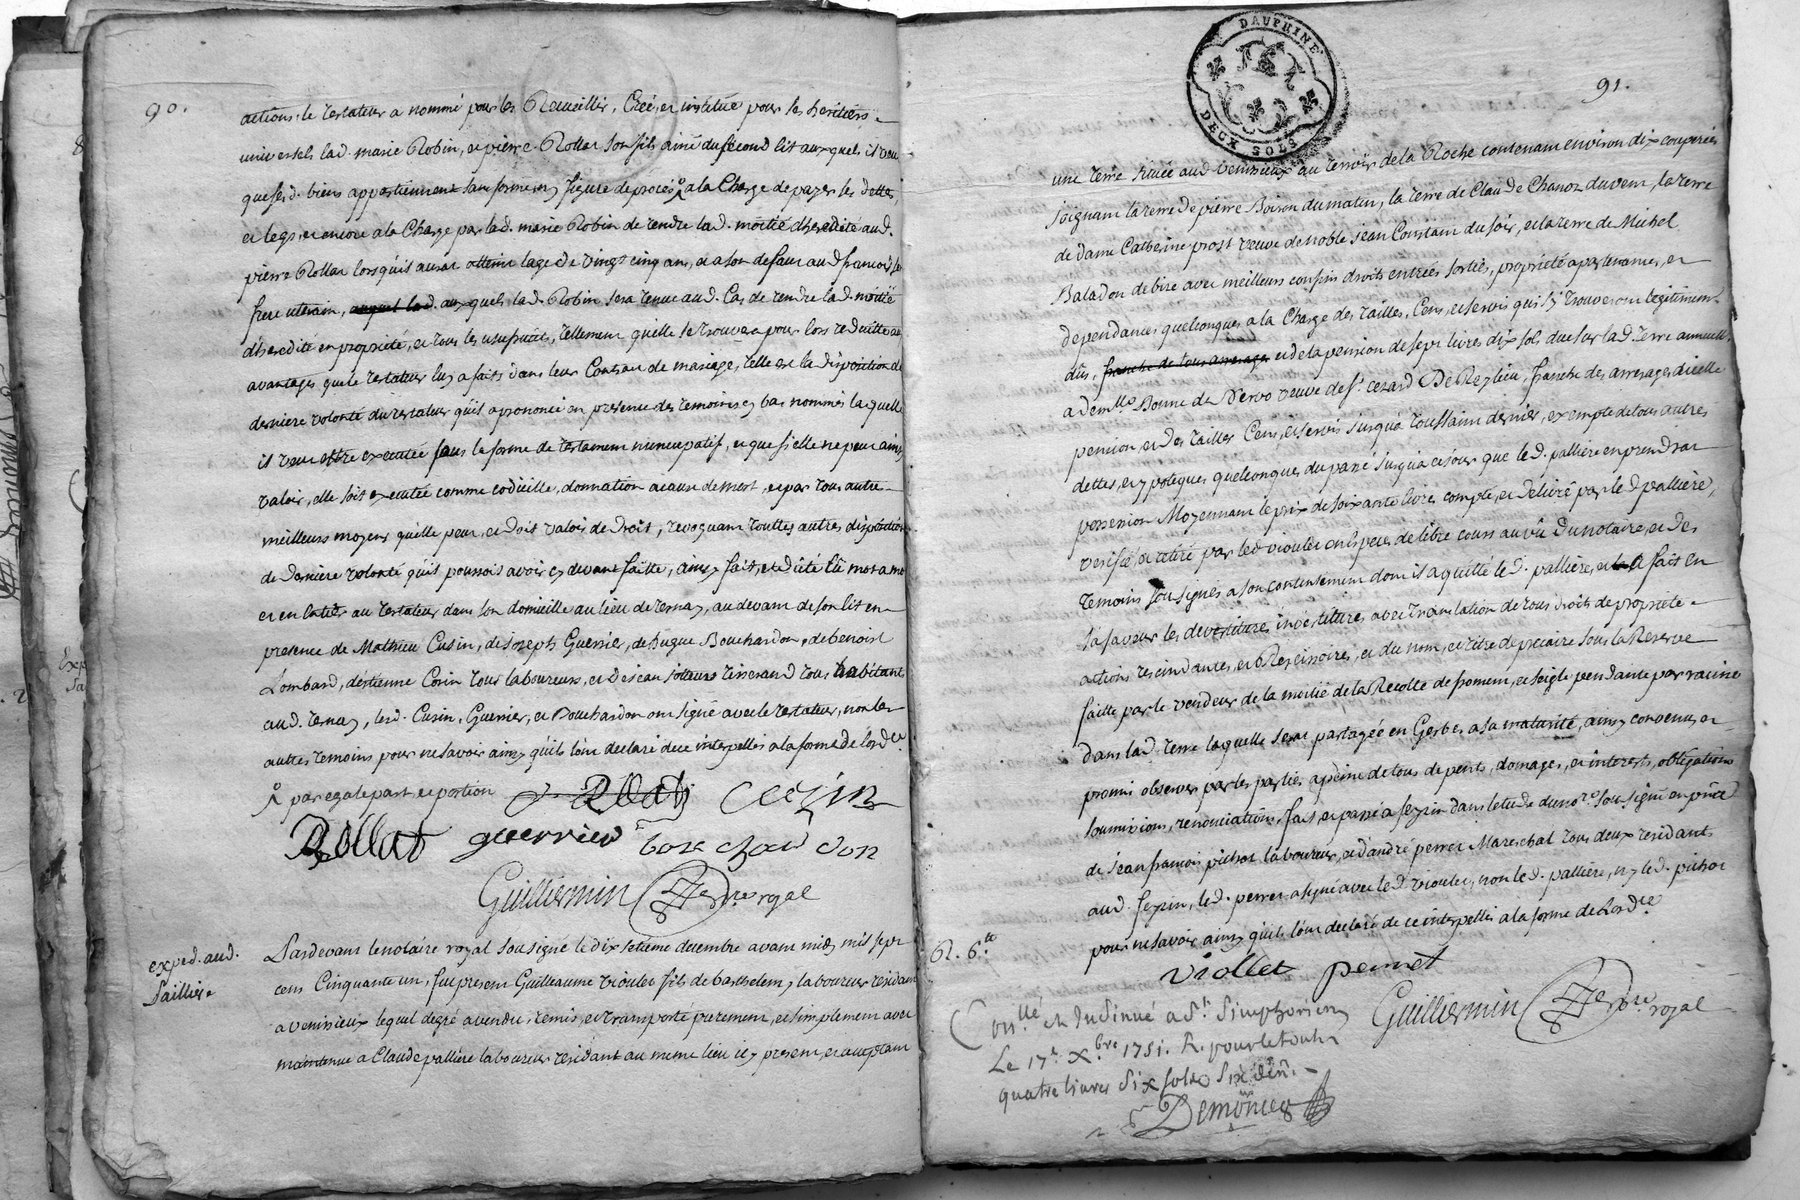 90.
actions, le testateur a nommé pour les Recueillir, Créé, et institué pour ses heritiers
universels lad. marie Robin, et pierre Rollat son fils ainé du second lit auxquels il veut
que sesd. biens appartiennent sans forme ny figure de procés, a la Charge de payer ses dettes,
et legs, et encore a la Charge par lad. marie Robin de rendre lad. moitié d'heredité aud.
pierre Rollat lorsqu'il aura atteint lage de vingt cinq ans, et a son defaut aud. francois son
frere uterin, auquel lad. auxquels lad. Robin sera tenue aud. Cas de rendre lad. moitié
d'heredité en propriété, et tous les usufruits, tellement qu'elle se trouvera pour lors reduitte aux
avantages que le testateur luy a faits dans leur Contrat de mariage, telle est la disposition de
derniere volonté du testateur qu'il a prononcé en presence des temoins cy bas nommés laquelle
il veut estre executée sous la forme de testament nuncupatif, et que si elle ne peut ainsy
valoir, elle soit executée comme codicille, donnation a cause de mort, et par tous autre
meilleurs moyens qu'elle peut, et doit valoir de droit, revoquant touttes autres dispositions
de derniere volonté qu'il pourroit avoir cy devant faitte, ainsy fait, et dicté lû mot a mot
et en entier au testateur dans son domicille au lieu de ternay, au devant de son lit en
presence de Mathieu Cusin, de Joseph Guerrier, de hugue Bouchardon, de benoist
Lombard, d'estienne Corin tous laboureurs, et de jean sotteurs tisserand tous habitant
aud. ternay, lesd. Cusin, Guerrier, et Bouchardon ont signé avec le testateur, non les
autres temoins pour ne savoir ainsy qu'ils l'ont declaré de ce interpellés a la forme de l'ordce.
par egale part et portion
Rollat Cuzin
Rollat guerrier bouchardon
Guilliermin nre royal
exped. aud.
Paillière
Pardevant le notaire royal soussigné le dix setième decembre avant midy mil sept
cent Cinquante un, fut present Guilleaume violet fils de barthelemy laboureur residant
a venissieux lequel de gré a vendu, remis, et transporté purement, et simplement avec
maintenue a Claude pallière laboureur residant au meme lieu icy present, et acceptant
DAUPHINE
DEUX SOLS
91.
une terre située aud. venissieux au terroir de la Roche contenant environ dix couperées
joignant la terre de pierre Boiron du matin, la terre de Claude Chanoz du vent, la terre
de dame Catherine prost veuve de noble jean Constant du soir, et la terre de Michel
Baladon de bize avec meilleurs confins droits entrées sorties, propriété apartenances, et
dependances quelconques a la Charge des tailles, Cens, et servis qui s'y trouveront legitimement
dûs, franche de tous arrerages et de la pension de sept livres dix sols due sur lad. terre annuellem.
a demlle Bonne de Dervo veuve de sr. cezard De Rezlieu, franche des arrerages dicelle
pension, et des tailles Cens, et servis jusqu'a toussaint dernier, exempte de tous autres
dettes, et ypoteques quelconques du passé jusqu'a ce jour que led. pallière en prendrat
possession Moyennant le prix de soixante livres compté, et delivré par led. pallière,
verifié, et retiré par led. violet en especes de libre cours au vû du notaire, et des
temoins soussignés a son contentement dont il a quitté led. pallière, et a fait en
sa faveur les devestitures investitures avec translation de tous droits de propriété
actions rescindantes, et Rescisoires, et du nom, et titre de precaire sous la Reserve
faitte par le vendeur de la moitié de la Recolte de froment, et seigle pendante par racine
dans lad. terre laquelle serat partagée en Gerbes a sa maturité, ainsy convenu, et
promis observer par les parties a peine de tous depents, domages, et interets, obligations
soumissions, renonciations, fait, et passé a feyzin dans letude du nore. soussigné en pnce.
de jean francois pichot laboureur, et d'andré perret Mareschal tous deux residants
aud. feyzin, led. perret a signé avec led. violet, non led. pallière, ny led. pichot
pour ne savoir ainsy qu'ils l'ont declaré de ce interpellés a la forme de Lordce.
R. 6.
viollet perret
Guilliermin nre royal
Con.llé et Insinué a St. Simphorien
Le 17e. Xbre 1751. R. pour le tout
quatre livres six sols six den.
Demônier